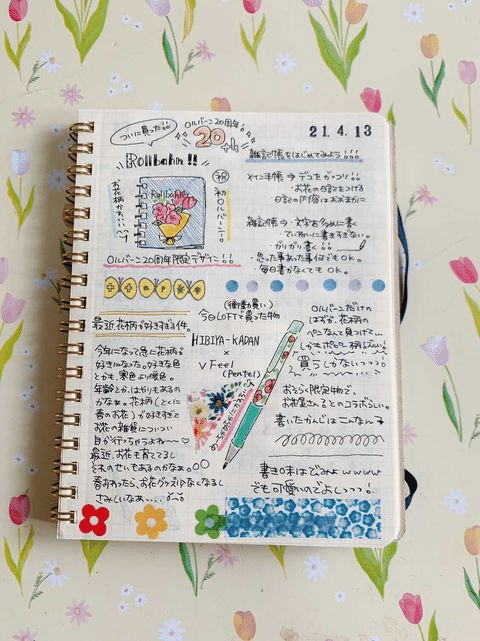 ついに買った!!
ロルバーン20周年!
20th
21.4.13
Rollbahn!!
お花柄かわいい〜!
Rollbahn
祝
初ロルバーン!!
ロルバーン20周年限定デザイン!!
雑記帳をはじめてみよう!!!
メイン手帳→デコをがっつり!
・お花の日記をつける
日記の内容はおおまかに
雑記帳→文字を多めに書く
・ていねいに書きすぎない。
ガリガリ書く!!
・思った事あった事何でもOK。
・毎日書かなくてもOK。
最近花柄が好きすぎる件。
今年になって急に花柄が
好きになった。好きな色
とかも、寒色より暖色。
年齢とか、はやりもあるの
かなぁ。花柄(とくに
春のお花)が好きすぎて
お花の雑貨についつい
目が行っちゃうよね〜♡
最近、お花も育ててるし
それのせいもあるのかなぁ。
春おわったら、お花グッズ少なくなるし
さみしいなぁ、、、、
(衝動買い)
今日LOFTで買った物
HIBIYA-KADAN
×
V Feel
(Pentel)
ロルバーンだけの
はずが、花柄の
ペンなんて見つけて…
しかもポピー柄っぽい!
買うしかないっっ!
おそらく限定物で、
お花屋さんとのコラボらしい。
書いたかんじはこんなん
書き味はびみょwwww
でも可愛いのでよしっっっ!